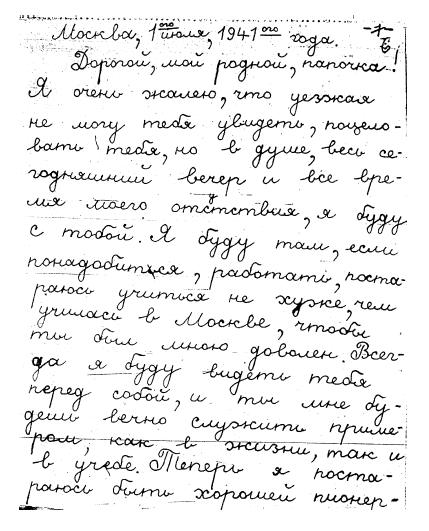 Москва, 1ого июля, 1941ого года.
Дорогой, мой родной, папочка!
Я очень жалею, что уезжая
не могу тебя увидеть, поцело-
вать тебя, но в душе, весь се-
годняшний вечер и все вре-
мя моего отсутствия, я буду
с тобой. Я буду там, если
понадобиться, работать, поста-
раюсь учиться не хуже, чем
училась в Москве, чтобы
ты был мною доволен. Всег-
да я буду видеть тебя
перед собой, и ты мне бу-
дешь вечно служить приме-
ром, как в жизни, так и
в учебе. Теперь я поста-
раюсь быть хорошей пионер-